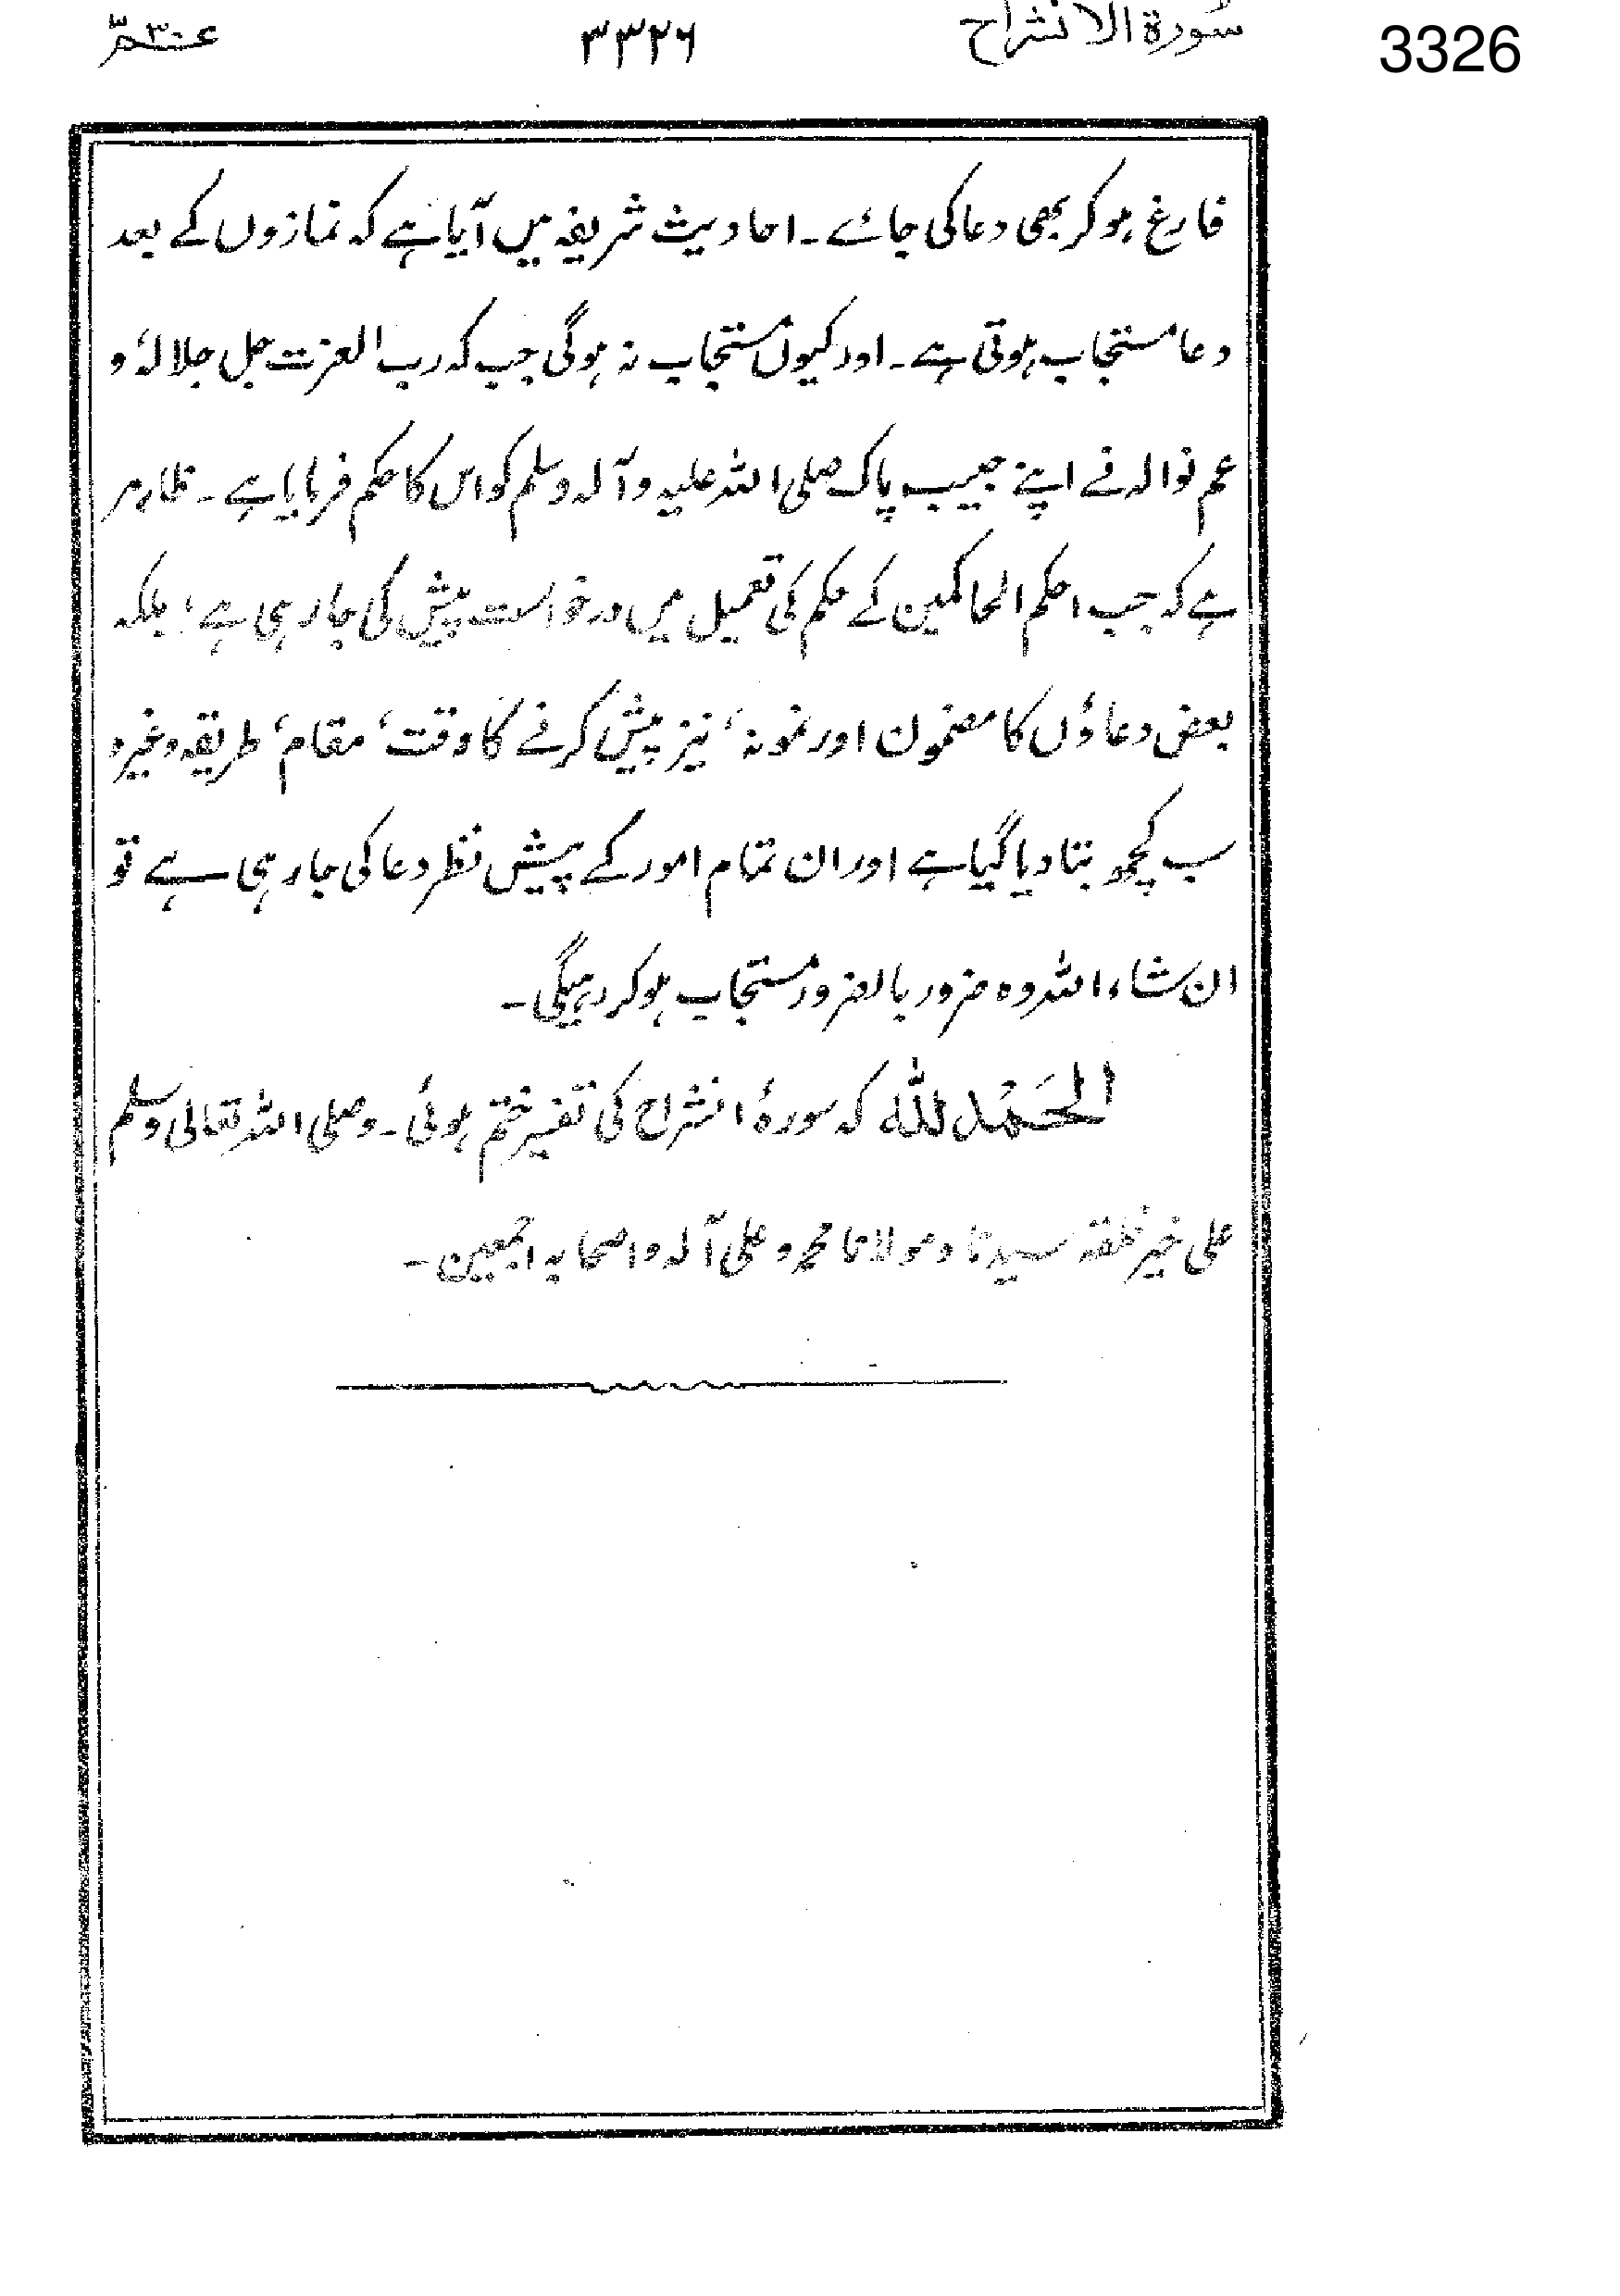 سُورة الانشراح ۳۳۲۶ 3326
فارغ ہوکر بھی دعا کی جائے۔ احادیث شریفہ میں آیا ہے کہ نمازوں کے بعد
دعا مستجاب ہوتی ہے۔ اور کیوں مستجاب نہ ہوگی جب کہ رب العزت جل جلالہٗ و
عم نوالہ نے اپنے حبیب پاک صلی اللہ علیہ وآلہ وسلم کو اس کا حکم فرمایا ہے۔ ظاہر
ہے کہ جب احکم الحاکمین کے حکم کی تعمیل میں درخواست پیش کی جارہی ہے؛ بلکہ
بعض دعاؤں کا مضمون اور نمونہ، نیز پیش کرنے کا وقت، مقام، طریقہ وغیرہ
سب کچھ بتا دیا گیا ہے اور ان تمام امور کے پیش نظر دعا کی جارہی ہے تو
ان شاء اللہ وہ ضرور بالضرور مستجاب ہوکر رہیگی۔
الحَمْدُ للّٰہ کہ سورۂ انشراح کی تفسیر ختم ہوئی۔ وصلی اللہ تعالیٰ وسلم
علی خیر خلقہ سیدنا ومولانا محمد وعلی آلہ واصحابہ اجمعین۔